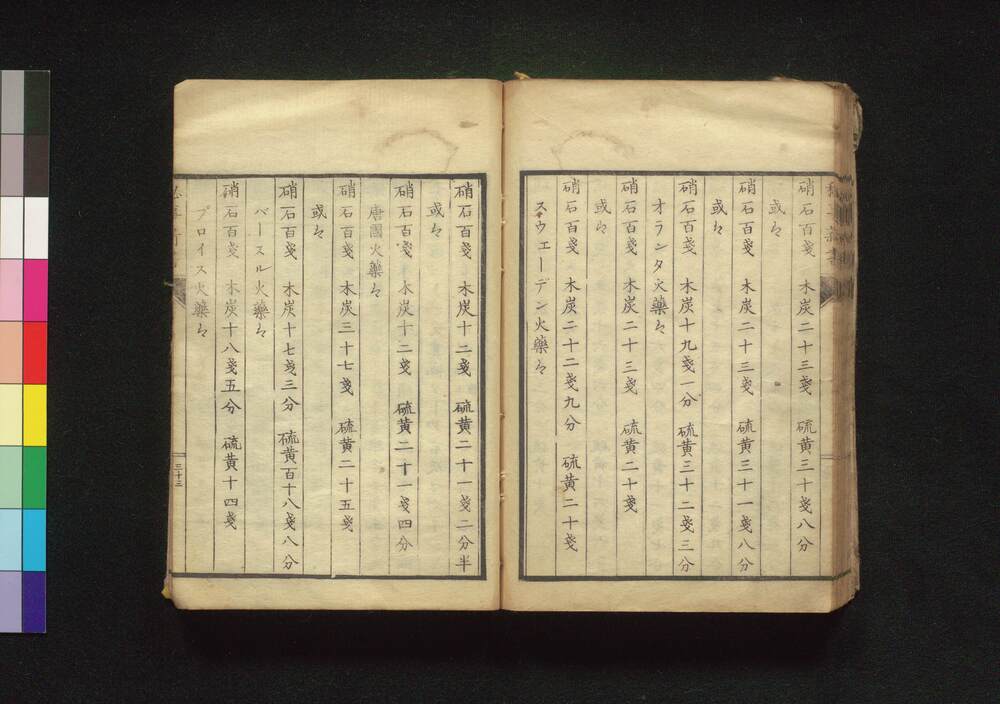 硝石百戔　木炭二十三戔　硫黄三十戔八分
或々
硝石百戔　木炭二十三戔　硫黄三十一戔八分
或々
硝石百戔　木炭十九戔一分　硫黄三十二戔三分
オランタ火藥々
硝石百戔　木炭二十三戔　硫黄二十戔
或々
硝石百戔　木炭二十二戔九分　硫黄二十戔
スウエーデン火藥々
硝石百戔　木炭十二戔　硫黄二十一戔二分半
或々
硝石百戔　木炭十二戔　硫黄二十一戔四分
唐國火藥々
硝石百戔　木炭三十七戔　硫黄二十五戔
或々
硝石百戔　木炭十七戔三分　硫黄百十八戔八分
バースル火藥々
硝石百戔　木炭十八戔五分　硫黄十四戔
プロイス火藥々
三十三